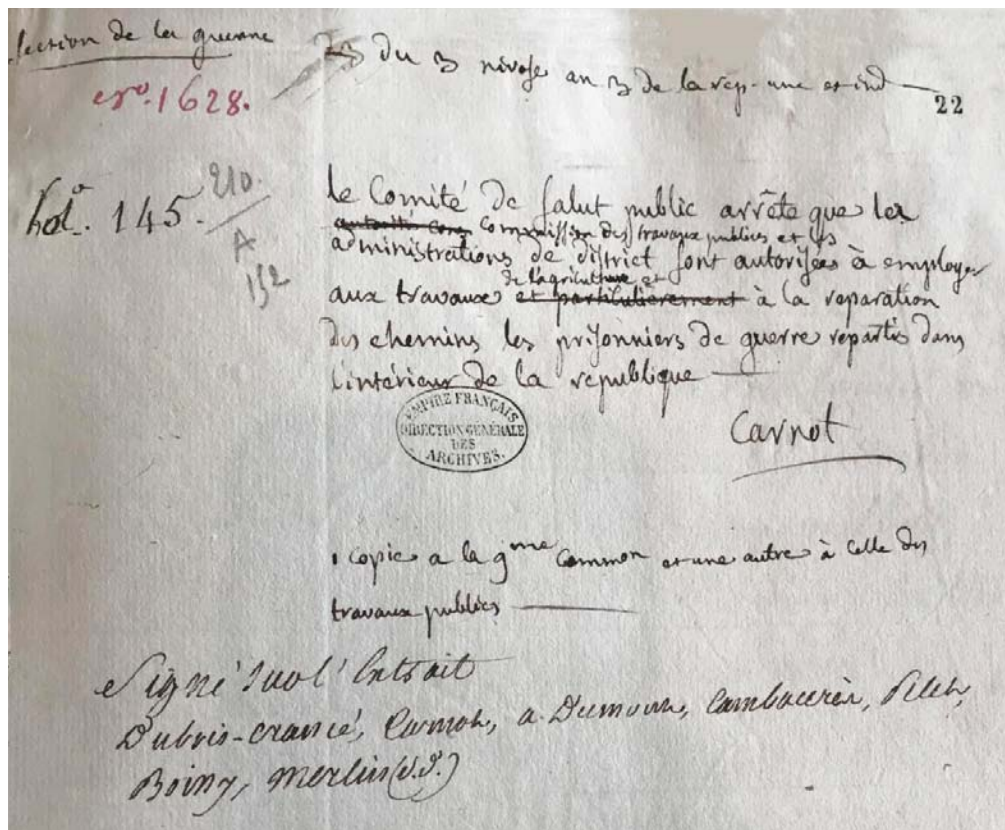 Section de la guerre
nro. 1628.
du 3 nivose an 3 de la rep. une et ind
22
fol. 145.
210.
A
152
le Comité de Salut public arrête que les
Commission des travaux publics et les
administrations de district sont autorisées à employer
de l'agriculture et
aux travaux et particulierement à la reparation
des chemins les prisonniers de guerre repartis dans
l'intérieur de la republique
EMPIRE FRANÇAIS
DIRECTION GÉNÉRALE
DES
ARCHIVES.
Carnot
1 copie a la 9me Common et une autre à celle des
travaux publics
Signé sur l'Extrait
Dubois-crancé, Carnot, a. Dumont, Cambacerès, Pelet,
Boissy, Merlin (d.d.)